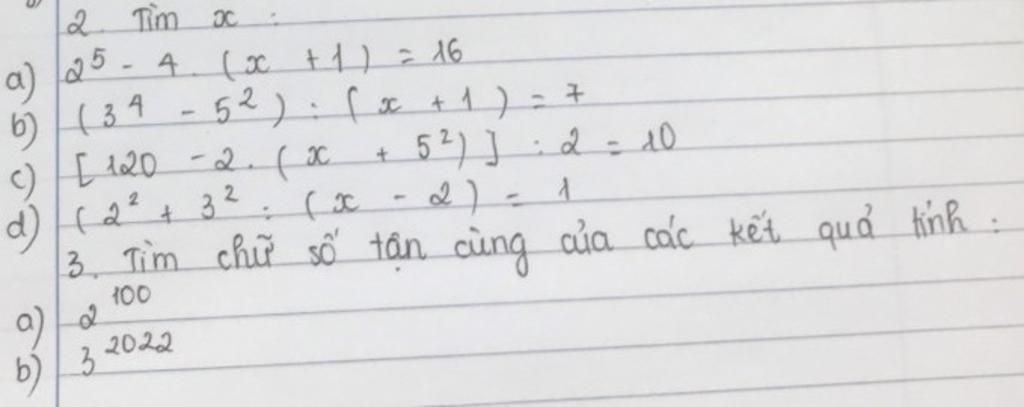 2. Tìm x :
a) 2⁵ - 4. (x + 1) = 16
b) (3⁴ - 5²) : (x + 1) = 7
c) [120 - 2. (x + 5²)] : 2 = 10
d) (2² + 3² : (x - 2) = 1
3. Tìm chữ số tận cùng của các kết quả tính :
a) 2¹⁰⁰
b) 3²⁰²²